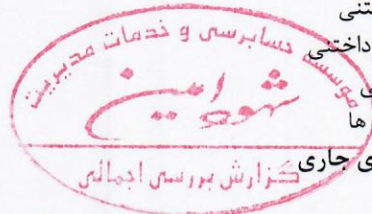 تنی
داختنی
ی
ها
ی جاری
موسسه حسابرسی و خدمات مدیریت
شهود امین
گزارش بررسی اجمالی